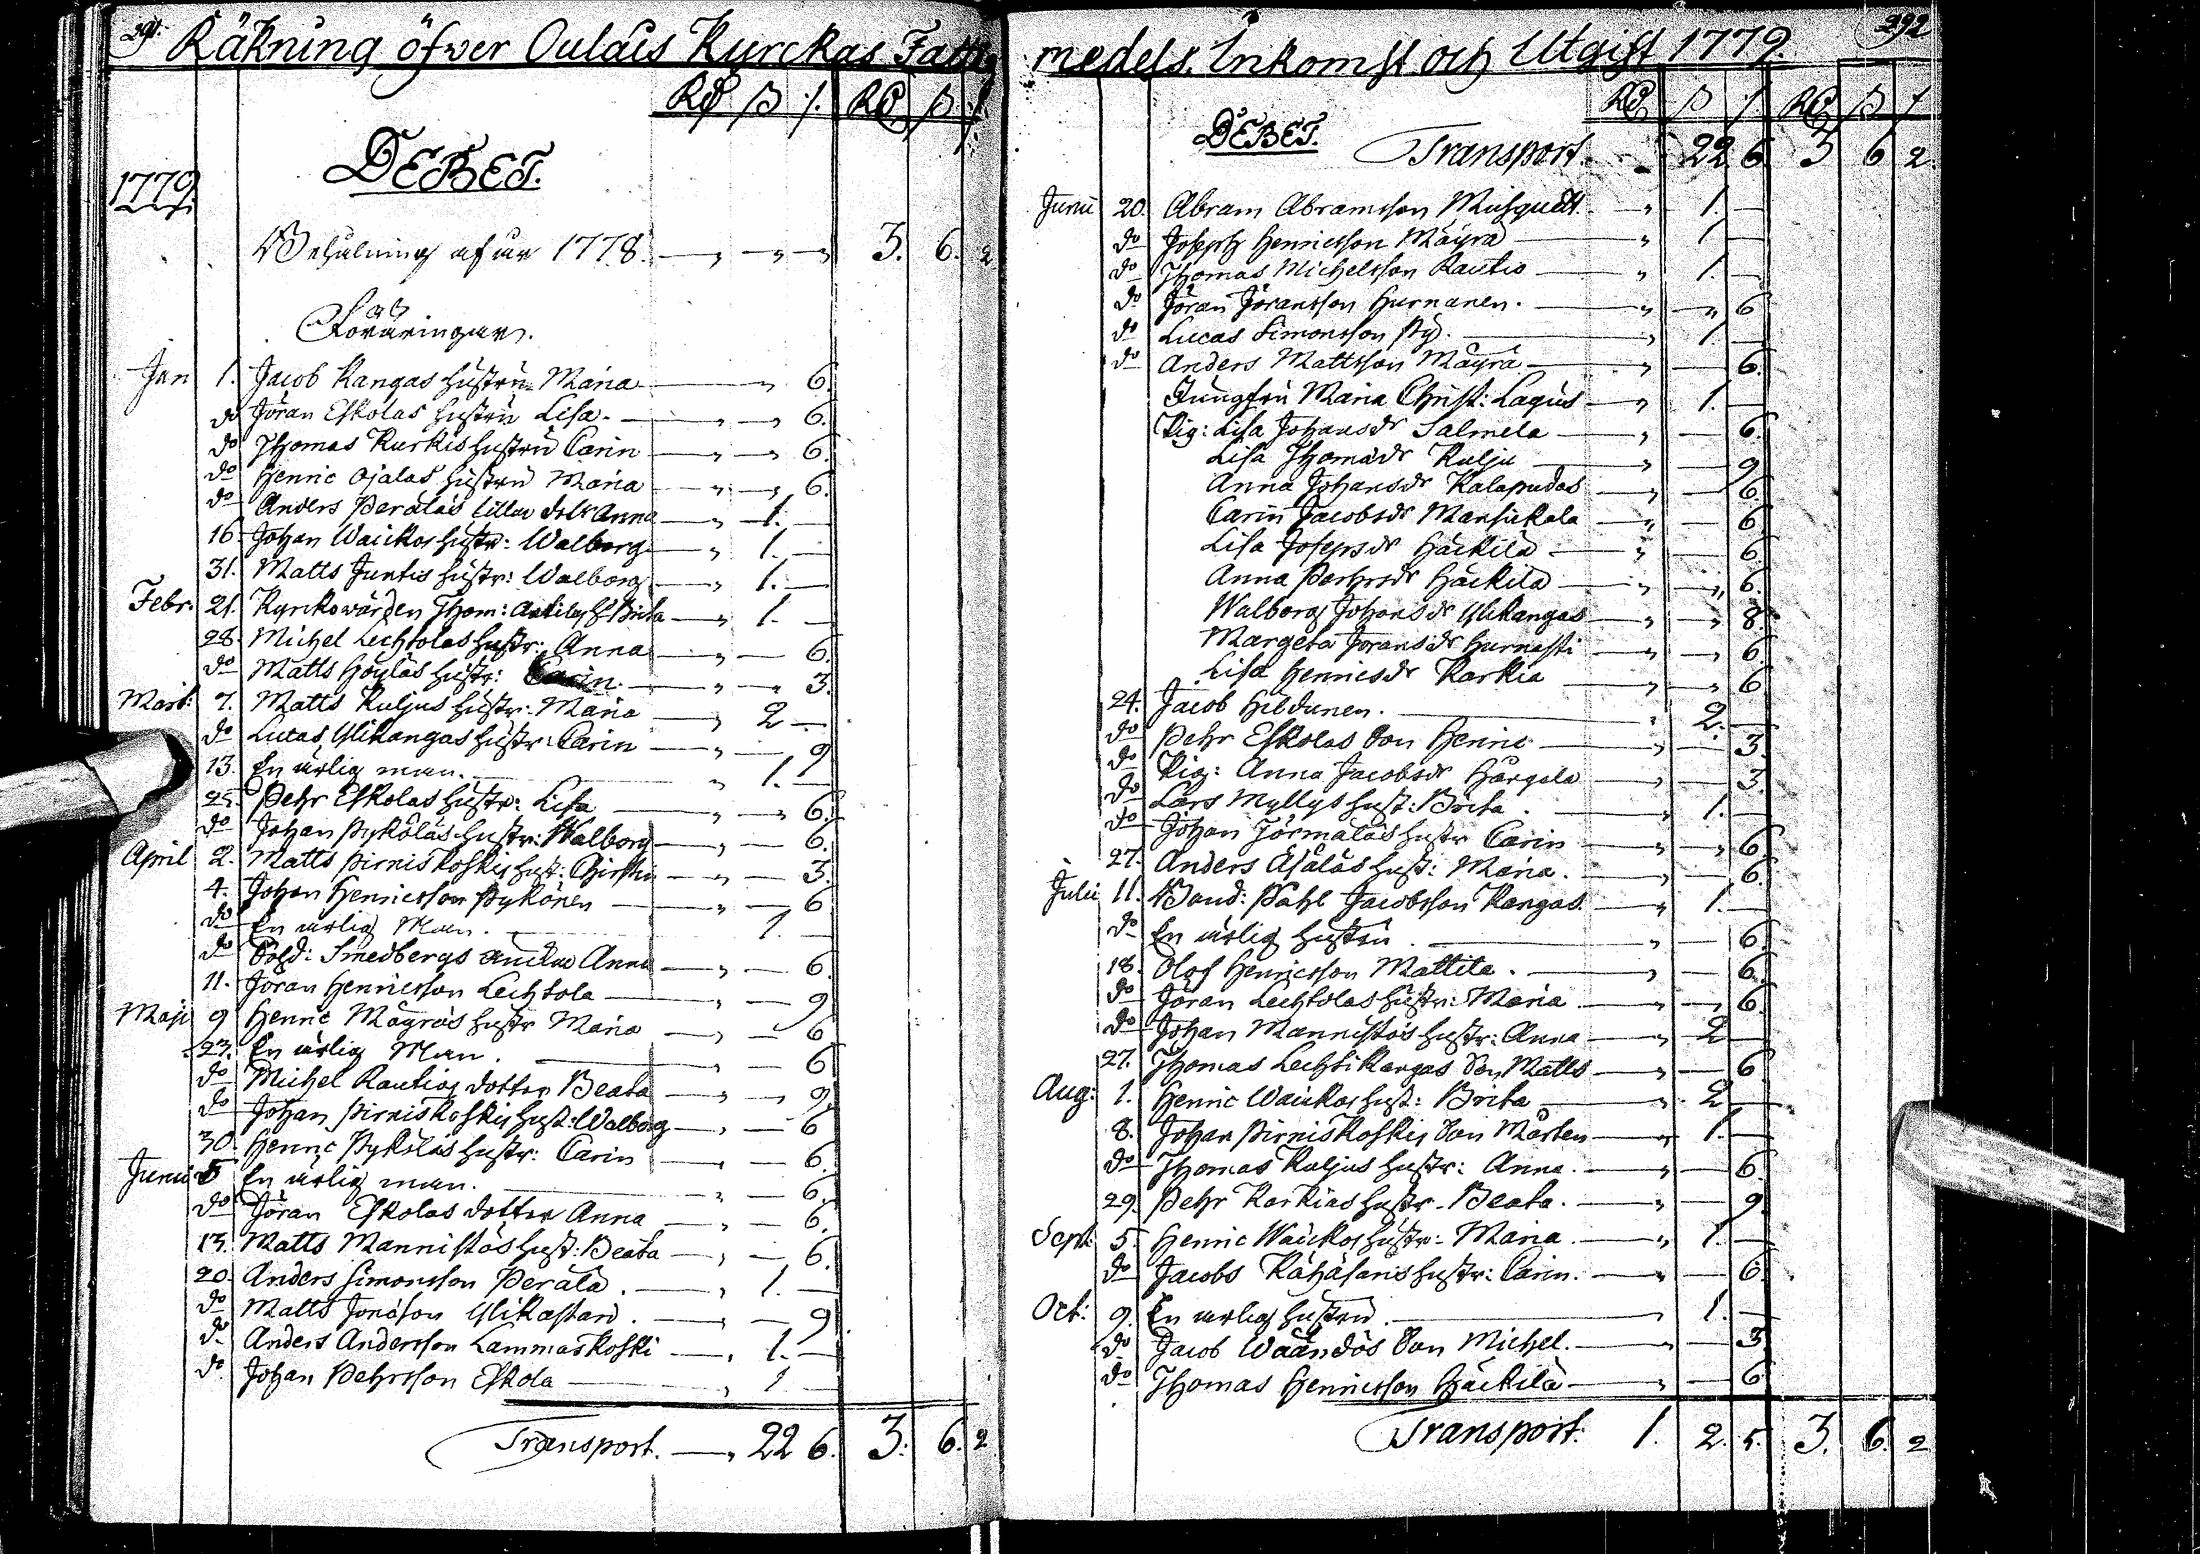 291.
Räkning öfwer Oulais Kyrckas Fattig
Rd ß /. Rd ß /.
DEBET.
1779.
Behålning af år 1778. 3. 6. 2
Föräringar.
Jan 1. Jacob Kangas hustru Maria 6.
do Jöran Eskolas hustru Lisa. 6.
do Thomas Kurkis hustru Carin 6.
do Henric Ojalas hustru Maria 6.
do Anders Peräläs lilla dotr Anna 1.
16. Johan Waickos hustr: Walborg 1.
31. Matts Juntis hustr: Walborg 1.
Febr. 21. Kyrckowärden Thom: H: Brita 1.
28. Michel Lechtolas hustr: Anna 6.
do Matts Höyläs hustr: Carin. 3.
Mart: 7. Matts Kuljus hustr: Maria 2
do Lucas Ylikangas hustr: Carin 9
13. En ärlig man. 1.
25. Pehr Eskolas hustr: Lisa 6.
do Johan Pyköläs hustr: Walborg 6.
April 2. Matts Pirniskoskis hust: 3.
4. Johan Henricsson Pykönen 6
do En ärlig Man. 1.
do Sold: Smedbergs Anna 6.
11. Jöran Henricsson Lechtola 9
Maji 9 Henric Mäyräs hustr Maria 6
23. En ärlig Man. 6
do Michel Rautios dotter Beata 9
do Johan Pirniskoskis hust: Walborg 6
30. Henric Pyköläs hustr: Carin 6.
Junii 5 En ärlig man. 6.
do Jöran Eskolas dotter Anna 6.
13. Matts Mannistös hust: Beata 6.
20. Anders Simonsson Perälä. 1.
do Matts Jonasson 9
do Anders Andersson Lammaskoski 1.
do Johan Pehrsson Eskola 1
Transport. 22 6. 3. 6. 2
292
medels Inkomst och Utgift 1779.
Rd ß /. Rd ß /.
DEBET. Transport. 22 6. 3 6 2.
Junii 20. Abram Abramsson Musquett. 1.
do Joseph Henricsson Mäyrä 1.
do Thomas Michelsson Rautio 1.
do Jöran Jöransson Hurnanen. 6
do Lucas Simonsson Py. 1.
do Anders Mattsson Mäyrä 6.
Jungfru Maria Christ: Lagus 1.
Pig: Lisa Johansdr Salmela 6.
Lisa Thomädr Kulju 9
Anna Johansdr Kalapudas 6.
Carin Jacobsdr Mansikala 6
Lisa Josepsdr Häckilä 6.
Anna Pehrsdr Häckilä 6.
Walborg Johansdr Ylikangas 8.
Margeta Joransdr Hurnasti 6.
Lisa Henricsdr Karkia 6.
24. Jacob Hildunen. 2.
do Pehr Eskolas Son Henric 3.
do Pig: Anna Jacobsdr Härgälä 3.
do Lars Myllys hust: Brita. 1.
do Johan Törmäläs hustr Carin 6
27. Anders Äijäläs hust: Maria. 6.
Julii 11. Bond: Påhl Jacobsson Kangas. 1.
do En ärlig hustru. 6.
18. Olof Henricsson Mattila. 6.
do Jöran Lechtolas hustr: Maria 6
do Johan Mannistös hustr: Anna 2
27. Thomas Lechtikangas Son Matts 6
Aug: 1. Henric Waickos hust: Brita 2
8. Johan Pirniskoskis Son Mårten 1.
do Thomas Kuljus hustr: Anna. 6.
29. Pehr Karkias hustr. Beata. 9.
Sept: 5. Henric Waickos hustr: Maria. 1.
do Jacobs hustr: Carin. 6.
Oct: 9. En ärlig hustru. 1.
do Jacob Wäändös Son Michel. 3.
do Thomas Henricsson Häckilä 6
Transport. 1. 2. 5. 3. 6. 2